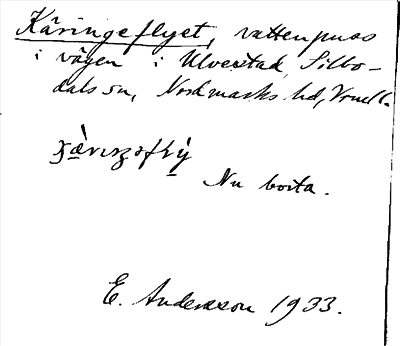 Käringeflyet, vattenpuss
i vägen i Ulvestad, Silbo-
dals sn, Nordmarks hd, Vrml.
Nu borta.
E. Andersson 1933.